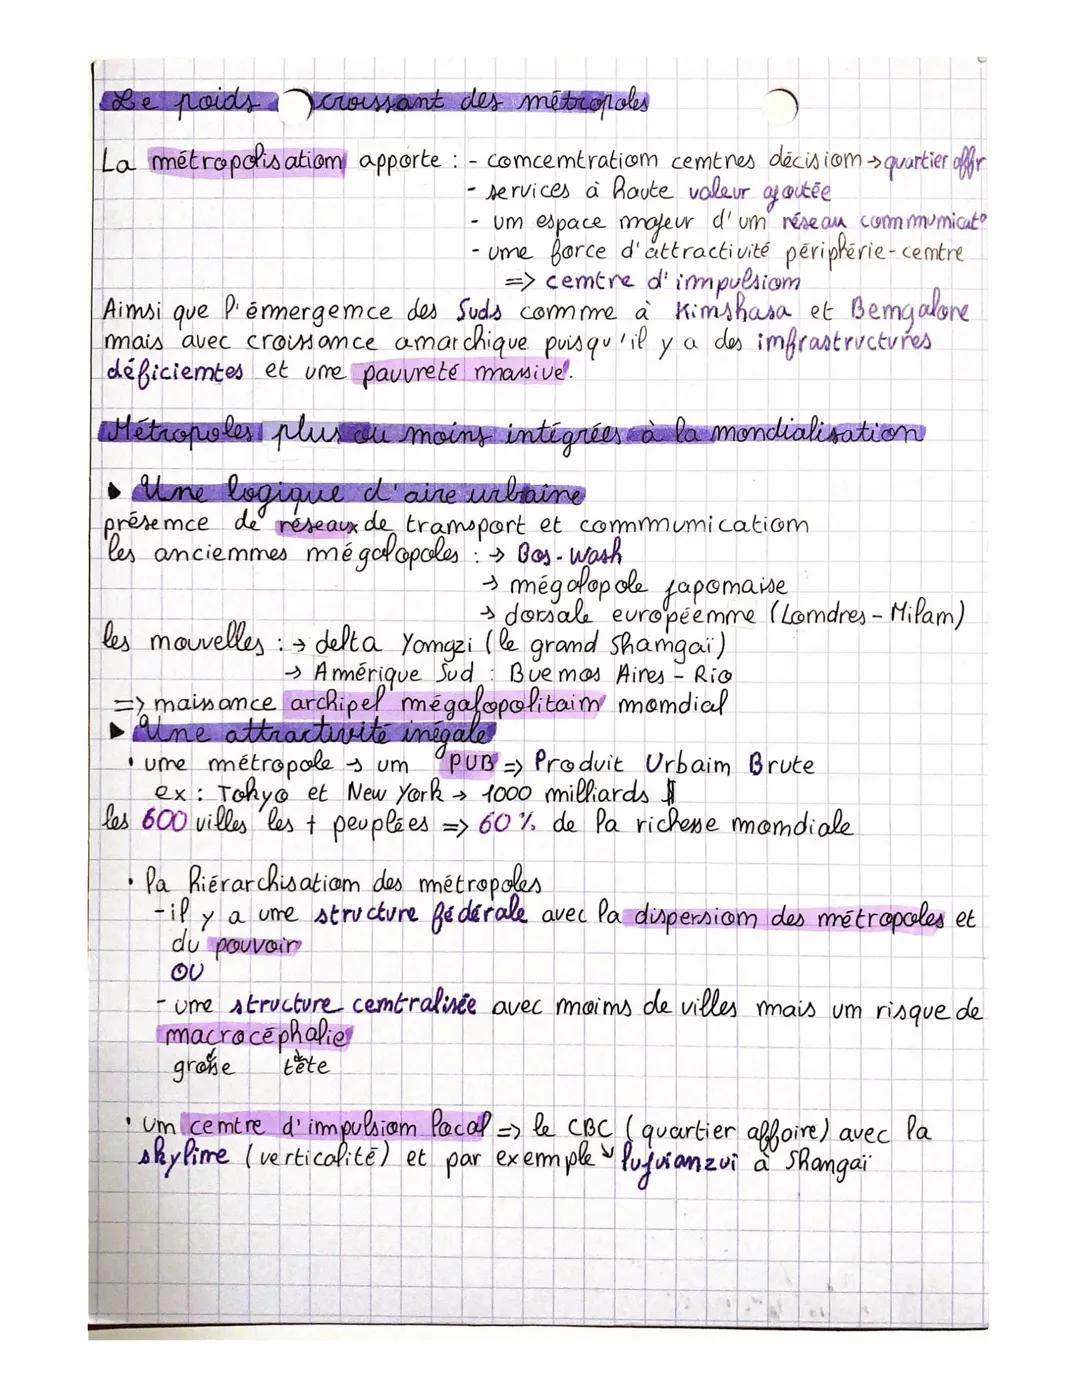 Le poids croissant des métropoles
La métropolisation apporte : - concentration centres décision → quartier affr
- services à haute valeur ajoutée
- un espace majeur d'un réseau communicat°
- une force d'attractivité périphérie-centre
=> centre d'impulsion
Ainsi que l'émergence des Suds comme à Kinshasa et Bengalore
mais avec croissance anarchique puisqu'il y a des infrastructures
déficientes et une pauvreté massive.
Métropoles plus ou moins intégrées à la mondialisation
▶ Une logique d'aire urbaine
présence de réseaux de transport et communication
les anciennes mégalopoles : → Bos-wash
→ mégalopole japonaise
→ dorsale européenne (Londres - Milan)
les nouvelles : → delta Yangzi (le grand Shangaï)
→ Amérique Sud : Buenos Aires - Rio
=> naissance archipel mégalopolitain mondial
▶ Une attractivité inégale
• une métropole → un PUB => Produit Urbain Brute
ex : Tokyo et New York → 1000 milliards $
les 600 villes les + peuplées => 60 % de la richesse mondiale
• la hiérarchisation des métropoles
- il y a une structure fédérale avec la dispersion des métropoles et
du pouvoir
OU
- une structure centralisée avec moins de villes mais un risque de
macrocéphalie
grosse tête
• un centre d'impulsion local => le CBC (quartier affaire) avec la
skyline (verticalité) et par exemple lujuianzui à Shangaï